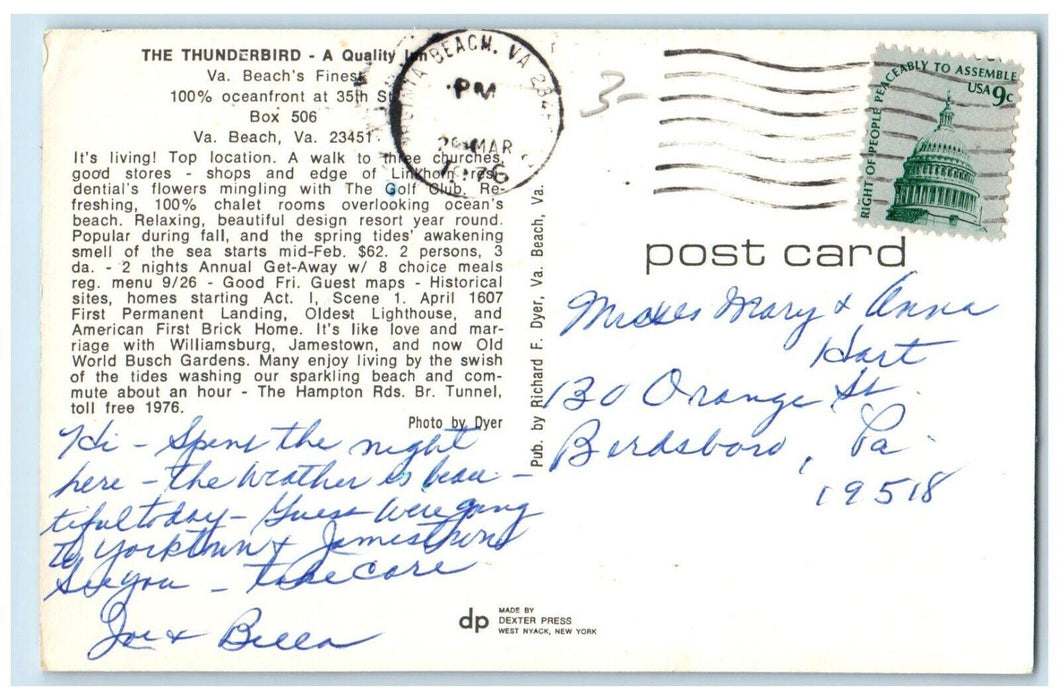 THE THUNDERBIRD - A Quality Inn
Va. Beach's Finest
100% oceanfront at 35th St.
Box 506
Va. Beach, Va. 23451
It's living! Top location. A walk to three churches,
good stores - shops and edge of Linkhorn resi-
dential's flowers mingling with The Golf Club. Re-
freshing, 100% chalet rooms overlooking ocean's
beach. Relaxing, beautiful design resort year round.
Popular during fall, and the spring tides' awakening
smell of the sea starts mid-Feb. $62. 2 persons, 3
da. - 2 nights Annual Get-Away w/ 8 choice meals
reg. menu 9/26 - Good Fri. Guest maps - Historical
sites, homes starting Act. I, Scene 1. April 1607
First Permanent Landing, Oldest Lighthouse, and
American First Brick Home. It's like love and mar-
riage with Williamsburg, Jamestown, and now Old
World Busch Gardens. Many enjoy living by the swish
of the tides washing our sparkling beach and com-
mute about an hour - The Hampton Rds. Br. Tunnel,
toll free 1976.
Photo by Dyer
Hi - Spent the night
here - the weather is beau -
tiful today - Guess we're going
to Yorktown & Jamestown
See you - take care
Joe &
VIRGINIA BEACH, VA
PM
MAR
1976
3-
RIGHT OF PEOPLE PEACEABLY TO ASSEMBLE
USA 9c
post card
Pub. by Richard F. Dyer, Va. Beach, Va.
Misses Mary & Anna
Hart
130 Orange St.
Birdsboro, Pa.
19518
dp
MADE BY
DEXTER PRESS
WEST NYACK, NEW YORK